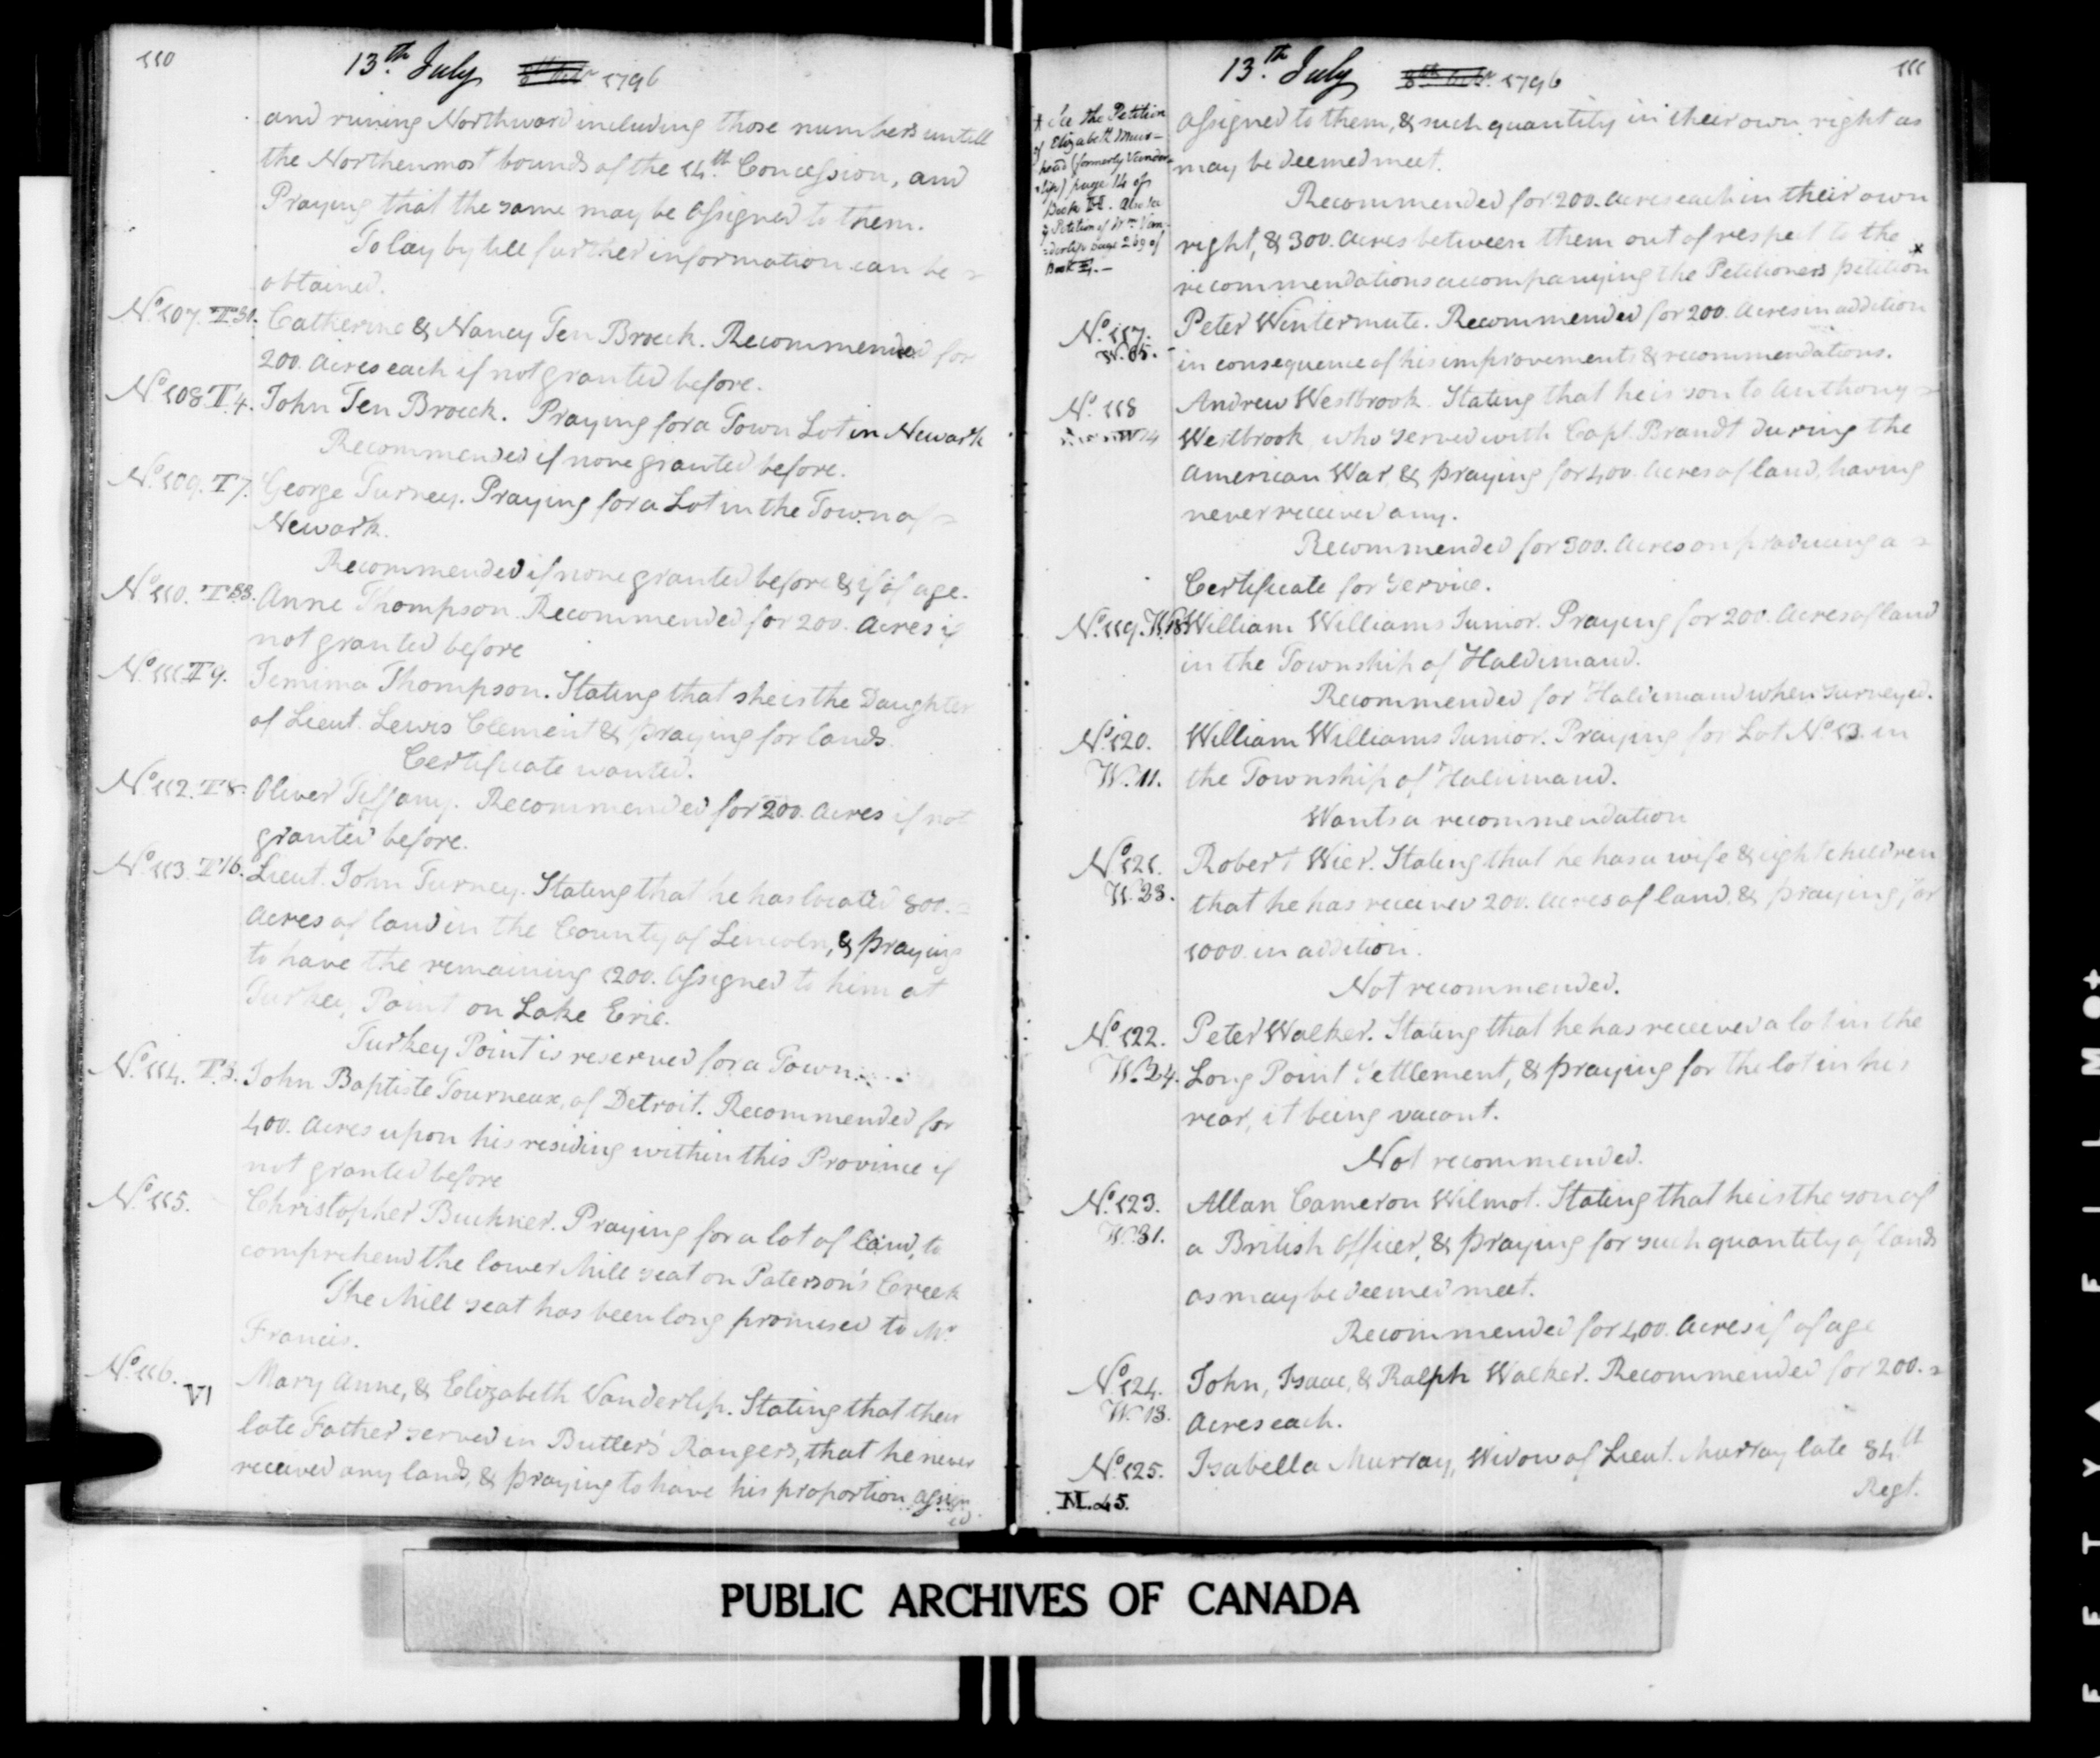 110
13.th July 8th Octr 1796
and runing Northward including those numbers untill
the Northernmost bounds of the 14.th Concession, and
Praying that the same may be assigned to them.
To lay by till further information can be
obtained.
No. 107. T 30. Catherine & Nancy Ten Broeck. Recommended for
200. Acres each if not granted before.
No. 108 T. 4. John Ten Broeck. Praying for a Town Lot in Newark
Recommended if none granted before.
No. 109. T 7. George Turney. Praying for a Lot in the Town of
Newark.
Recommended if none granted before & if of age.
No. 110. T 33. Anne Thompson. Recommended for 200. Acres if
not granted before
No. 111 T 9. Jemima Thompson. Stating that she is the Daughter
of Lieut. Lewis Clement & praying for lands.
Certificate wanted.
No. 112. T 8. Oliver Tiffany. Recommended for 200. Acres if not
granted before.
No. 113. T 16. Lieut. John Turney. Stating that he has located 800.
Acres of land in the County of Lincoln, & praying
to have the remaining 1200. assigned to him at
Turkey Point on Lake Erie.
Turkey Point is reserved for a Town.
No. 114. T. 3. John Baptiste Tourneux, of Detroit. Recommended for
400. Acres upon his residing within this Province if
not granted before
No. 115. Christopher Buchner. Praying for a lot of land, to
comprehend the lower Mill seat on Paterson's Creek
The Mill seat has been long promised to Mr
Francis.
No. 116. V 1 Mary Anne, & Elizabeth Vanderlip. Stating that their
late Father served in Butler's Rangers, that he never
received any lands, & praying to have his proportion assign
ed
111
13.th July 8th Octr. 1796
x See the Petition
of Elizabeth Muir-
head (formerly Vander-
lip) page 14 of
Book
Petition of Wm Van-
derlip page 239 of
Book
assigned to them, & such quantity in their own right as
may be deemed meet.
Recommended for 200. Acres each in their own
right, & 300. Acres between them out of respect to the
recommendations accompanying the Petitioners petition x
No. 117. Peter Wintermute. Recommended for 200. Acres in addition
W. 85. in consequence of his improvements & recommendations.
No. 118 Andrew Westbrook. Stating that he is son to Anthony
Westbrook who served with Capt. Brandt during the
American War, & praying for 400. Acres of land, having
never received any.
Recommended for 300. Acres on producing a
Certificate for service.
No. 119. W. William Williams Junior. Praying for 200. Acres of land
in the Township of Haldimand.
Recommended for Haldimand when surveyed.
No. 120. William Williams Junior. Praying for Lot No. 13. in
W. 11. the Township of Haldimand.
Wants a recommendation
No. 121. Robert Wier. Stating that he has a wife & eight children
W. 23. that he has received 200. Acres of land, & praying for
1000 in addition.
Not recommended.
No. 122. Peter Walker. Stating that he has received a lot in the
W. 24. Long Point Settlement, & praying for the lot in his
rear, it being vacant.
Not recommended.
No. 123. Allan Cameron Wilmot. Stating that he is the son of
W. 31. a British Officer, & praying for such quantity of lands
as may be deemed meet.
Recommended for 400. Acres if of age
No. 124. John, Isaac, & Ralph Walker. Recommended for 200.
W. 18. Acres each.
No. 125. Isabella Murray, Widow of Lieut. Murray late 84th
M. 45. Regt.
PUBLIC ARCHIVES OF CANADA